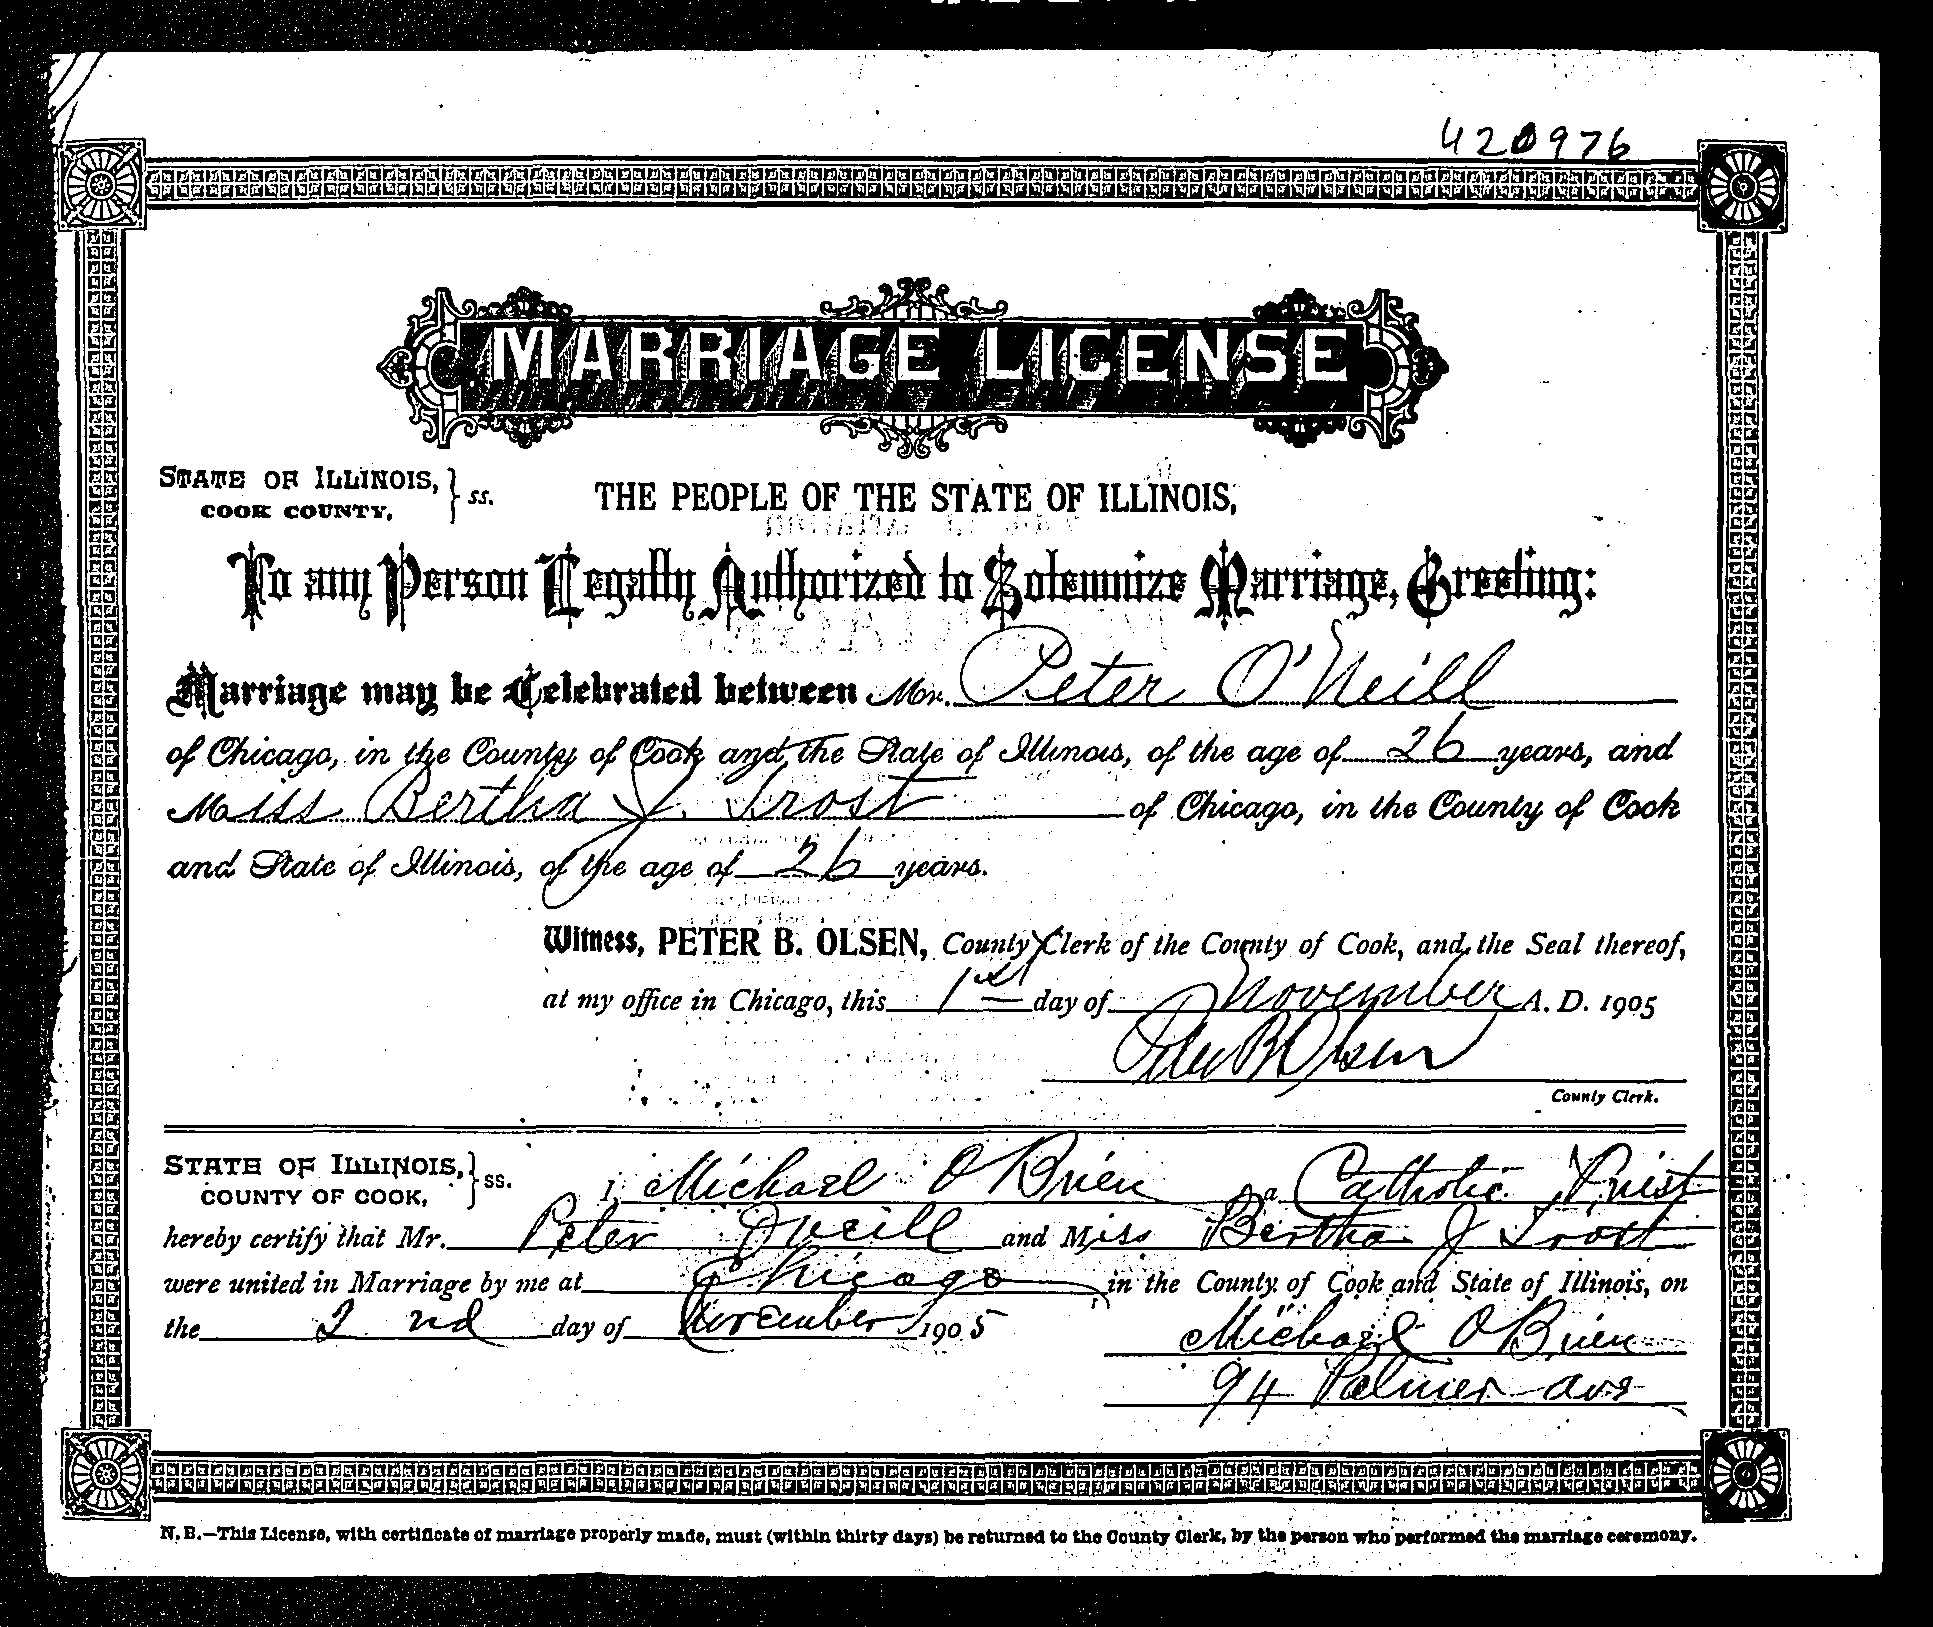 420976
MARRIAGE LICENSE
STATE OF ILLINOIS, } ss.
COOK COUNTY,
THE PEOPLE OF THE STATE OF ILLINOIS,
To any Person Legally Authorized to Solemnize Marriage, Greeting:
Marriage may be Celebrated between Mr. Peter O'Neill
of Chicago, in the County of Cook and the State of Illinois, of the age of 26 years, and
Miss Bertha J. Trost of Chicago, in the County of Cook
and State of Illinois, of the age of 26 years.
Witness, PETER B. OLSEN, County Clerk of the County of Cook, and the Seal thereof,
at my office in Chicago, this 1st day of November A. D. 1905
Peter B Olsen
County Clerk.
STATE OF ILLINOIS, } ss.
COUNTY OF COOK,
I, Michael O Brien a Catholic Priest
hereby certify that Mr. Peter O'Neill and Miss Bertha J Trost
were united in Marriage by me at Chicago in the County of Cook and State of Illinois, on
the 2nd day of November 1905
Michael O Brien
94 Palmer ave
N. B.—This License, with certificate of marriage properly made, must (within thirty days) be returned to the County Clerk, by the person who performed the marriage ceremony.